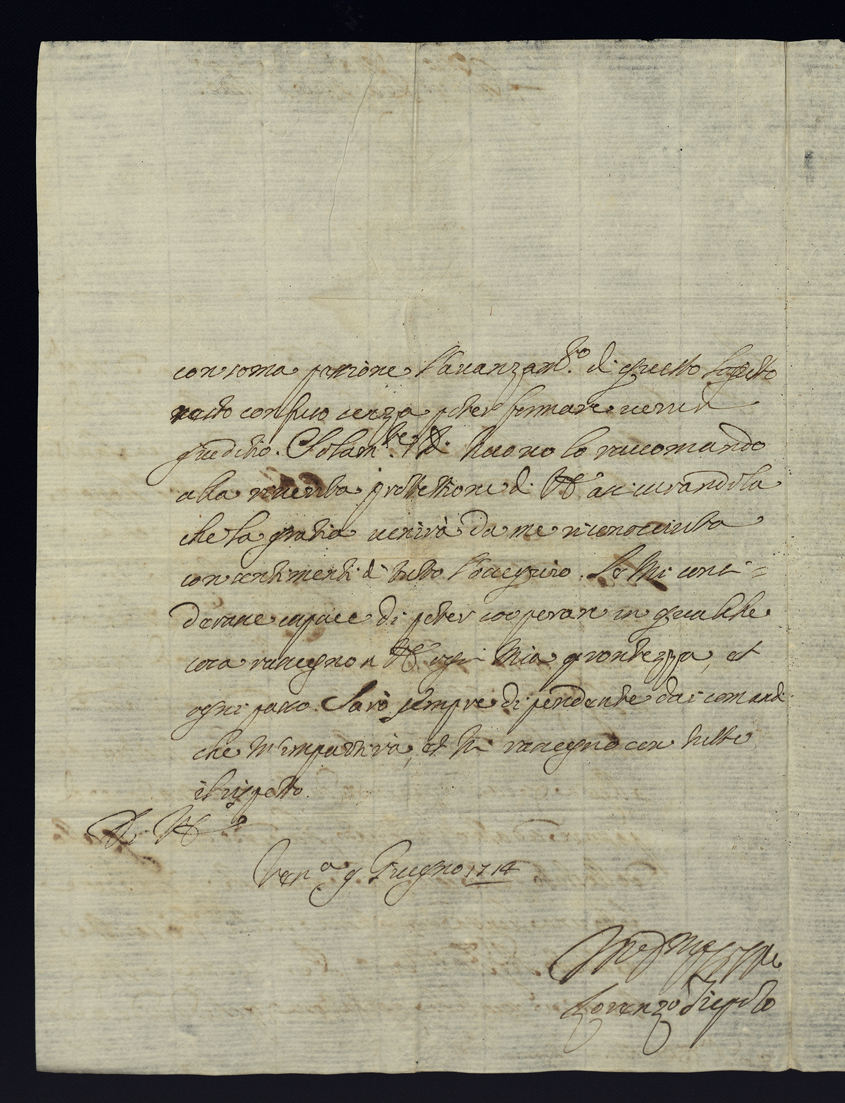 con soma passione l'auanzam.to di questo sogetto
resto confuso senza poter formare uerun
giuditio. Solam.te V.E.
alla riuerita protettione di V.E. assicurandola
che la gratia uerrà da me riconosciuta
con sentimenti di tutto l'ossequio. Se mi consi=
derasse capace di poter cooperare in qualche
cosa rassegno a V.E. ogni mia prontezza, et
ogni passo. Sarò sempre dipendente dai comandi
che m'impartirà, et mi rassegno con tutto
il rispetto.
Di V.E.
Ven.a 9 Giugno 1714
Lorenzo Tiepolo